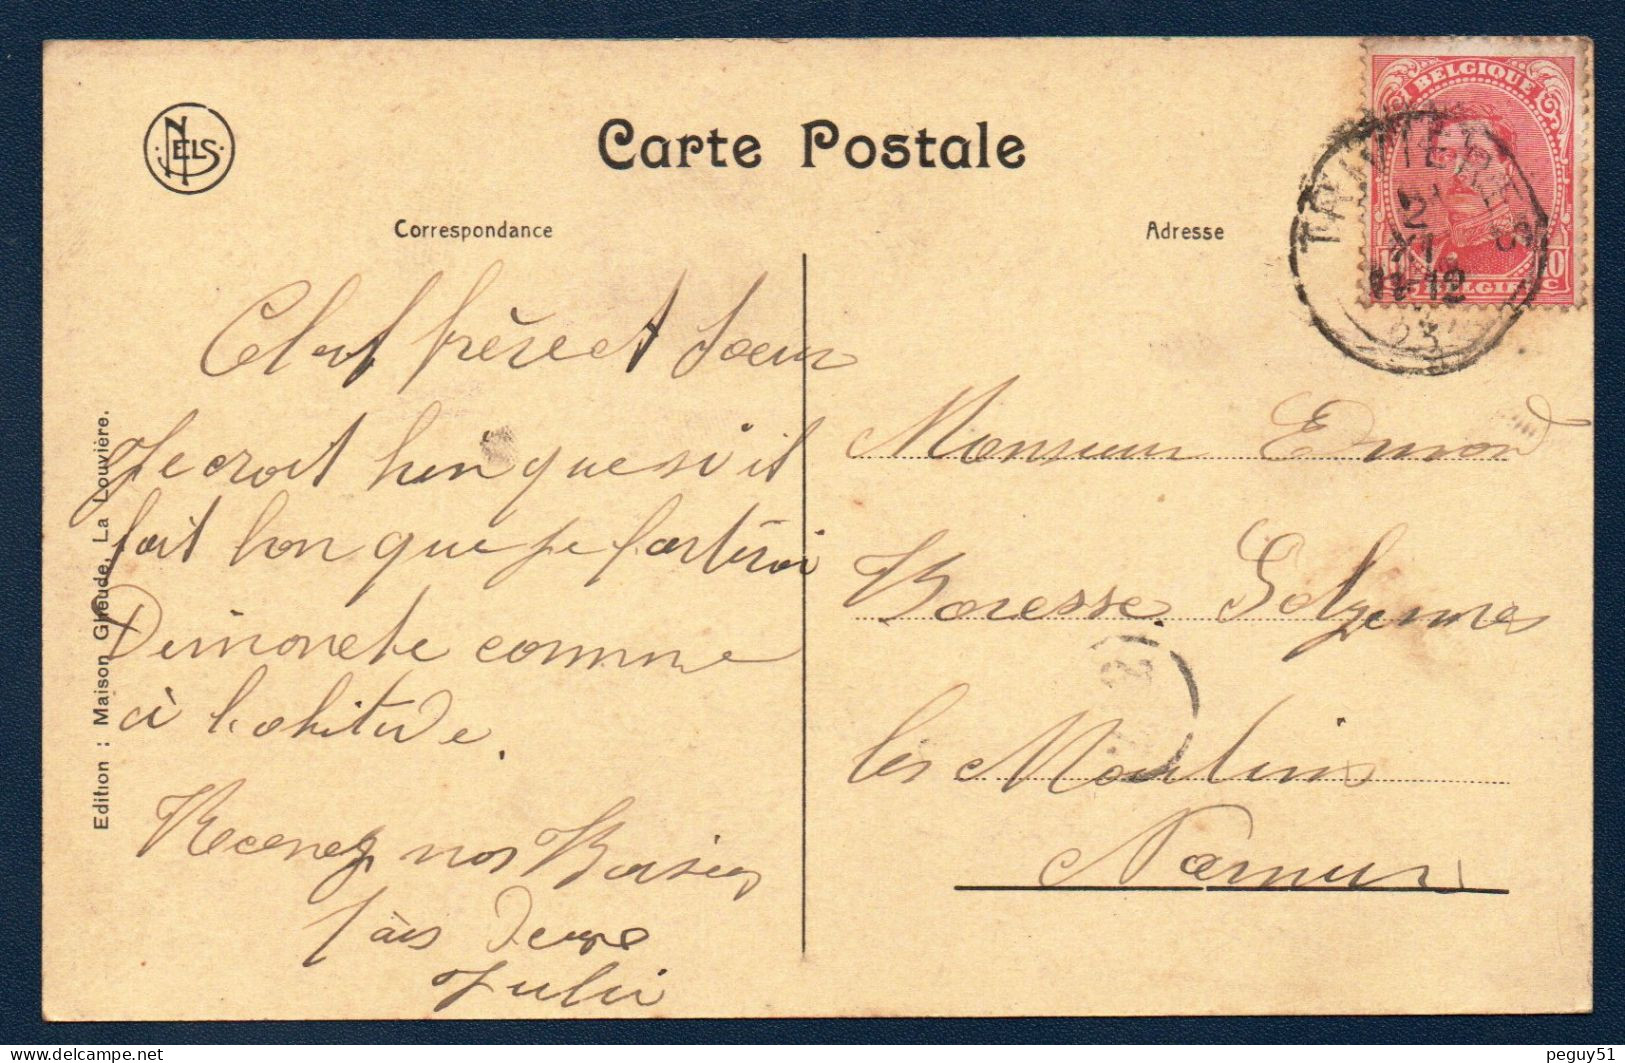 NELS
Carte Postale
BELGIQUE
TRIVIERES
21
XI
11-12
23
10
BELGIE
Correspondance
Adresse
Cher frère et Soeur
Je croit bien que si it
fait bon que je partirai
Dimanche comme
à l'abitude.
Recevez nos Baisers
Julia
Monsieur Emond
Boresse
les Moulins
Namur
Edition : Maison Gheude, La Louvière.
peguy51